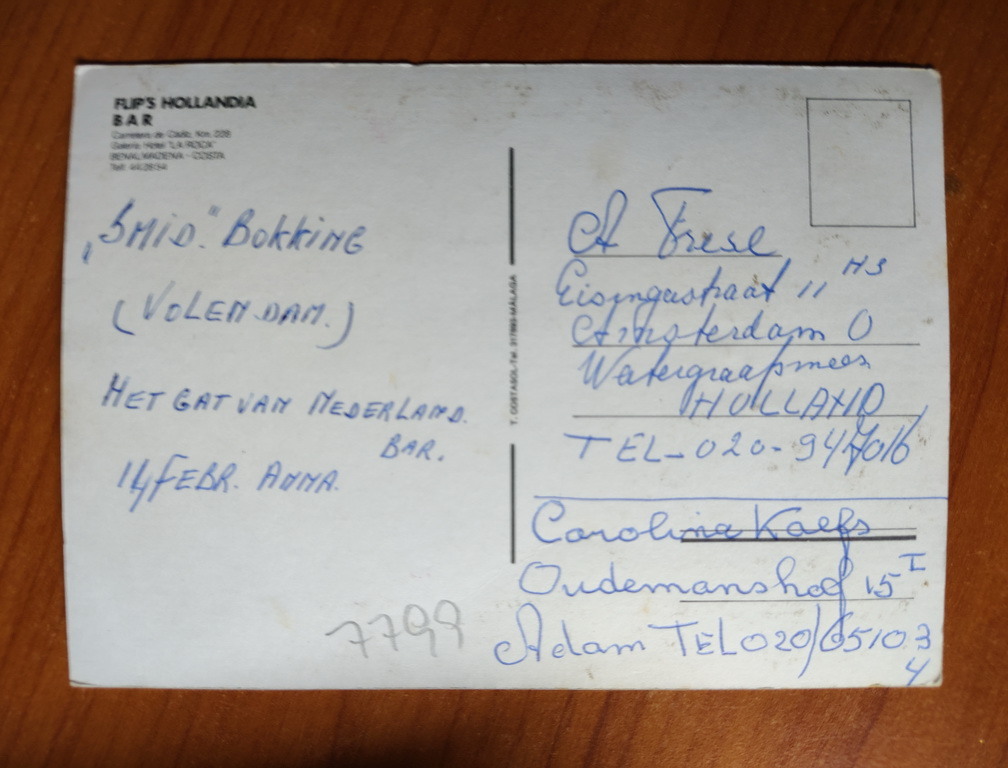 FLIP'S HOLLANDIA
BAR
Carretera de Cádiz, Km. 228
Galería Hotel "LA ROCA"
BENALMADENA - COSTA
„SMID." BOKKING
(VOLENDAM.)
HET GAT VAN NEDERLAND.
BAR.
14 FEBR. ANNA.
7799
T. COSTASOL-Tel. 317893-MALAGA
A Frese
Eisingastraat 11 HS
Amsterdam O
Watergraafsmeer
HOLLAND
TEL-020-947016
Carolina Kaefs
Oudemanshof 15 I
Adam TEL 020/65103
4